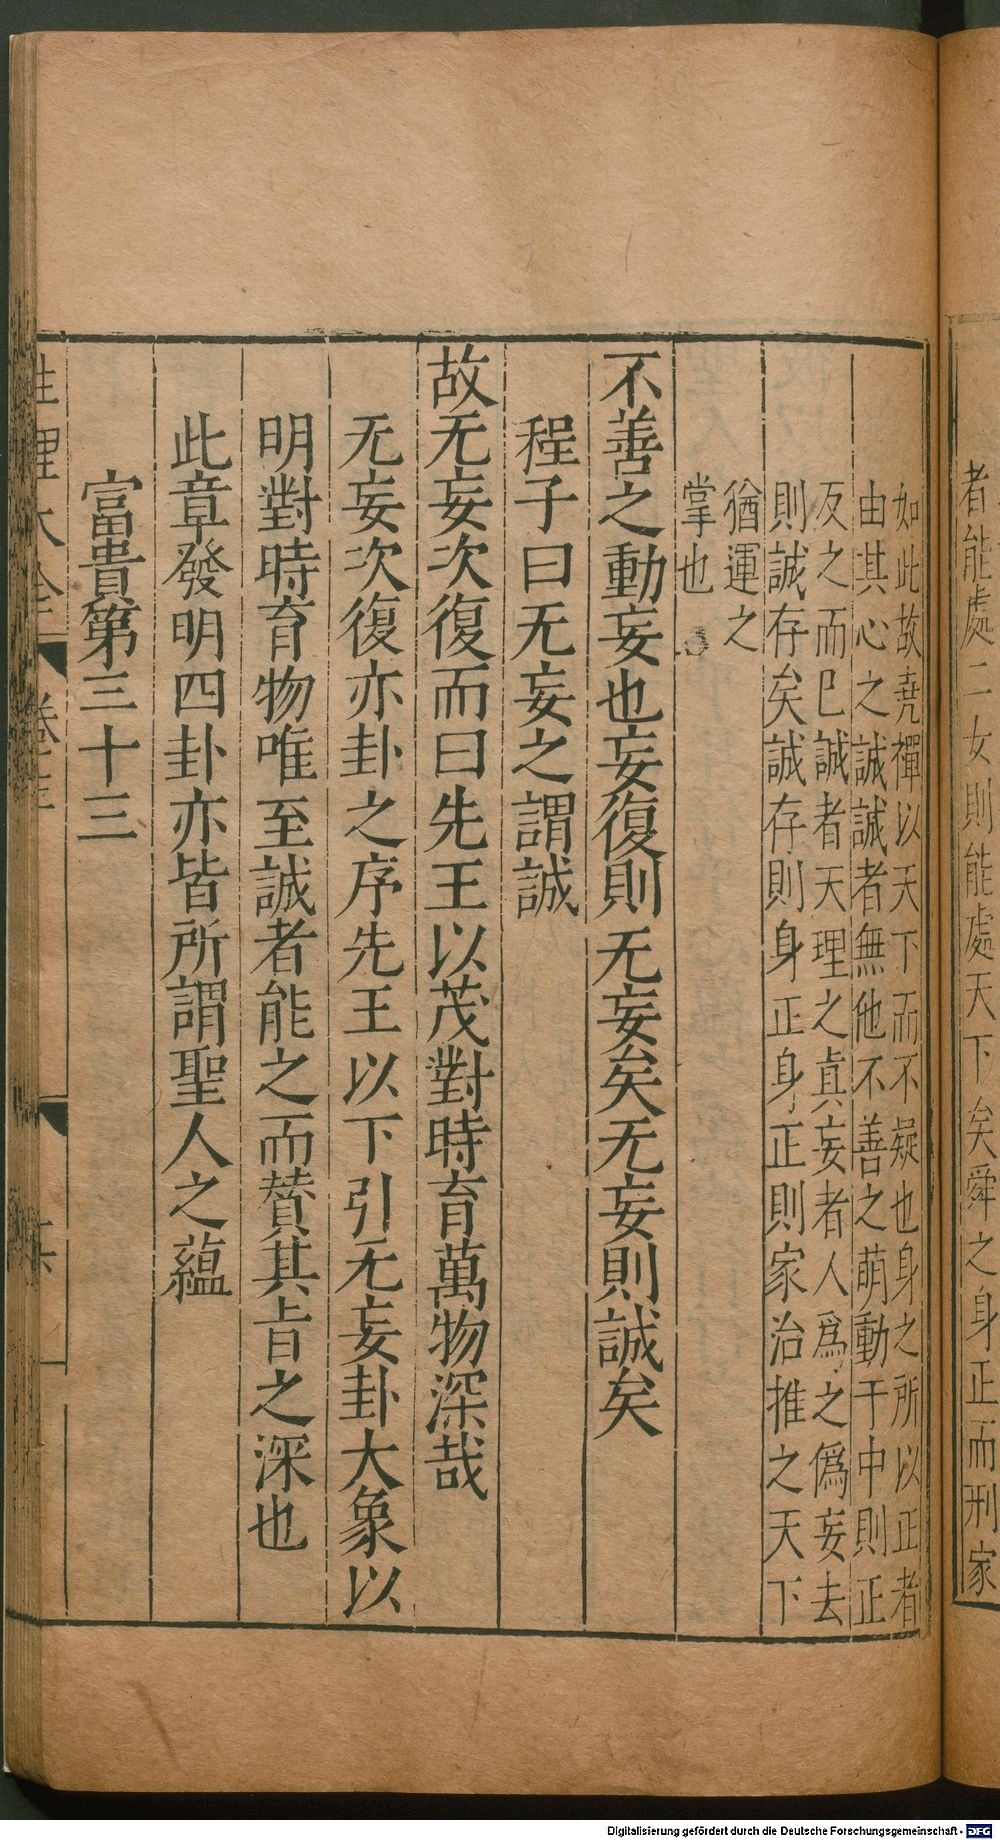 者能處二女則能處天下矣舜之身正而刑家
如此故堯禪以天下而不疑也身之所以正者
由其心之誠誠者無他不善之萌動于中則正
反之而已誠者天理之眞妄者人爲之僞妄去
則誠存矣誠存則身正身正則家治推之天下
猶運之
掌也
不善之動妄也妄復則无妄矣无妄則誠矣
程子曰无妄之謂誠
故无妄次復而曰先王以茂對時育萬物深哉
无妄次復亦卦之序先王以下引无妄卦大象以
明對時育物唯至誠者能之而賛其旨之深也
此章發明四卦亦皆所謂聖人之蘊
富貴第三十三
性理大全 卷之
Digitalisierung gefördert durch die Deutsche Forschungsgemeinschaft - DFG